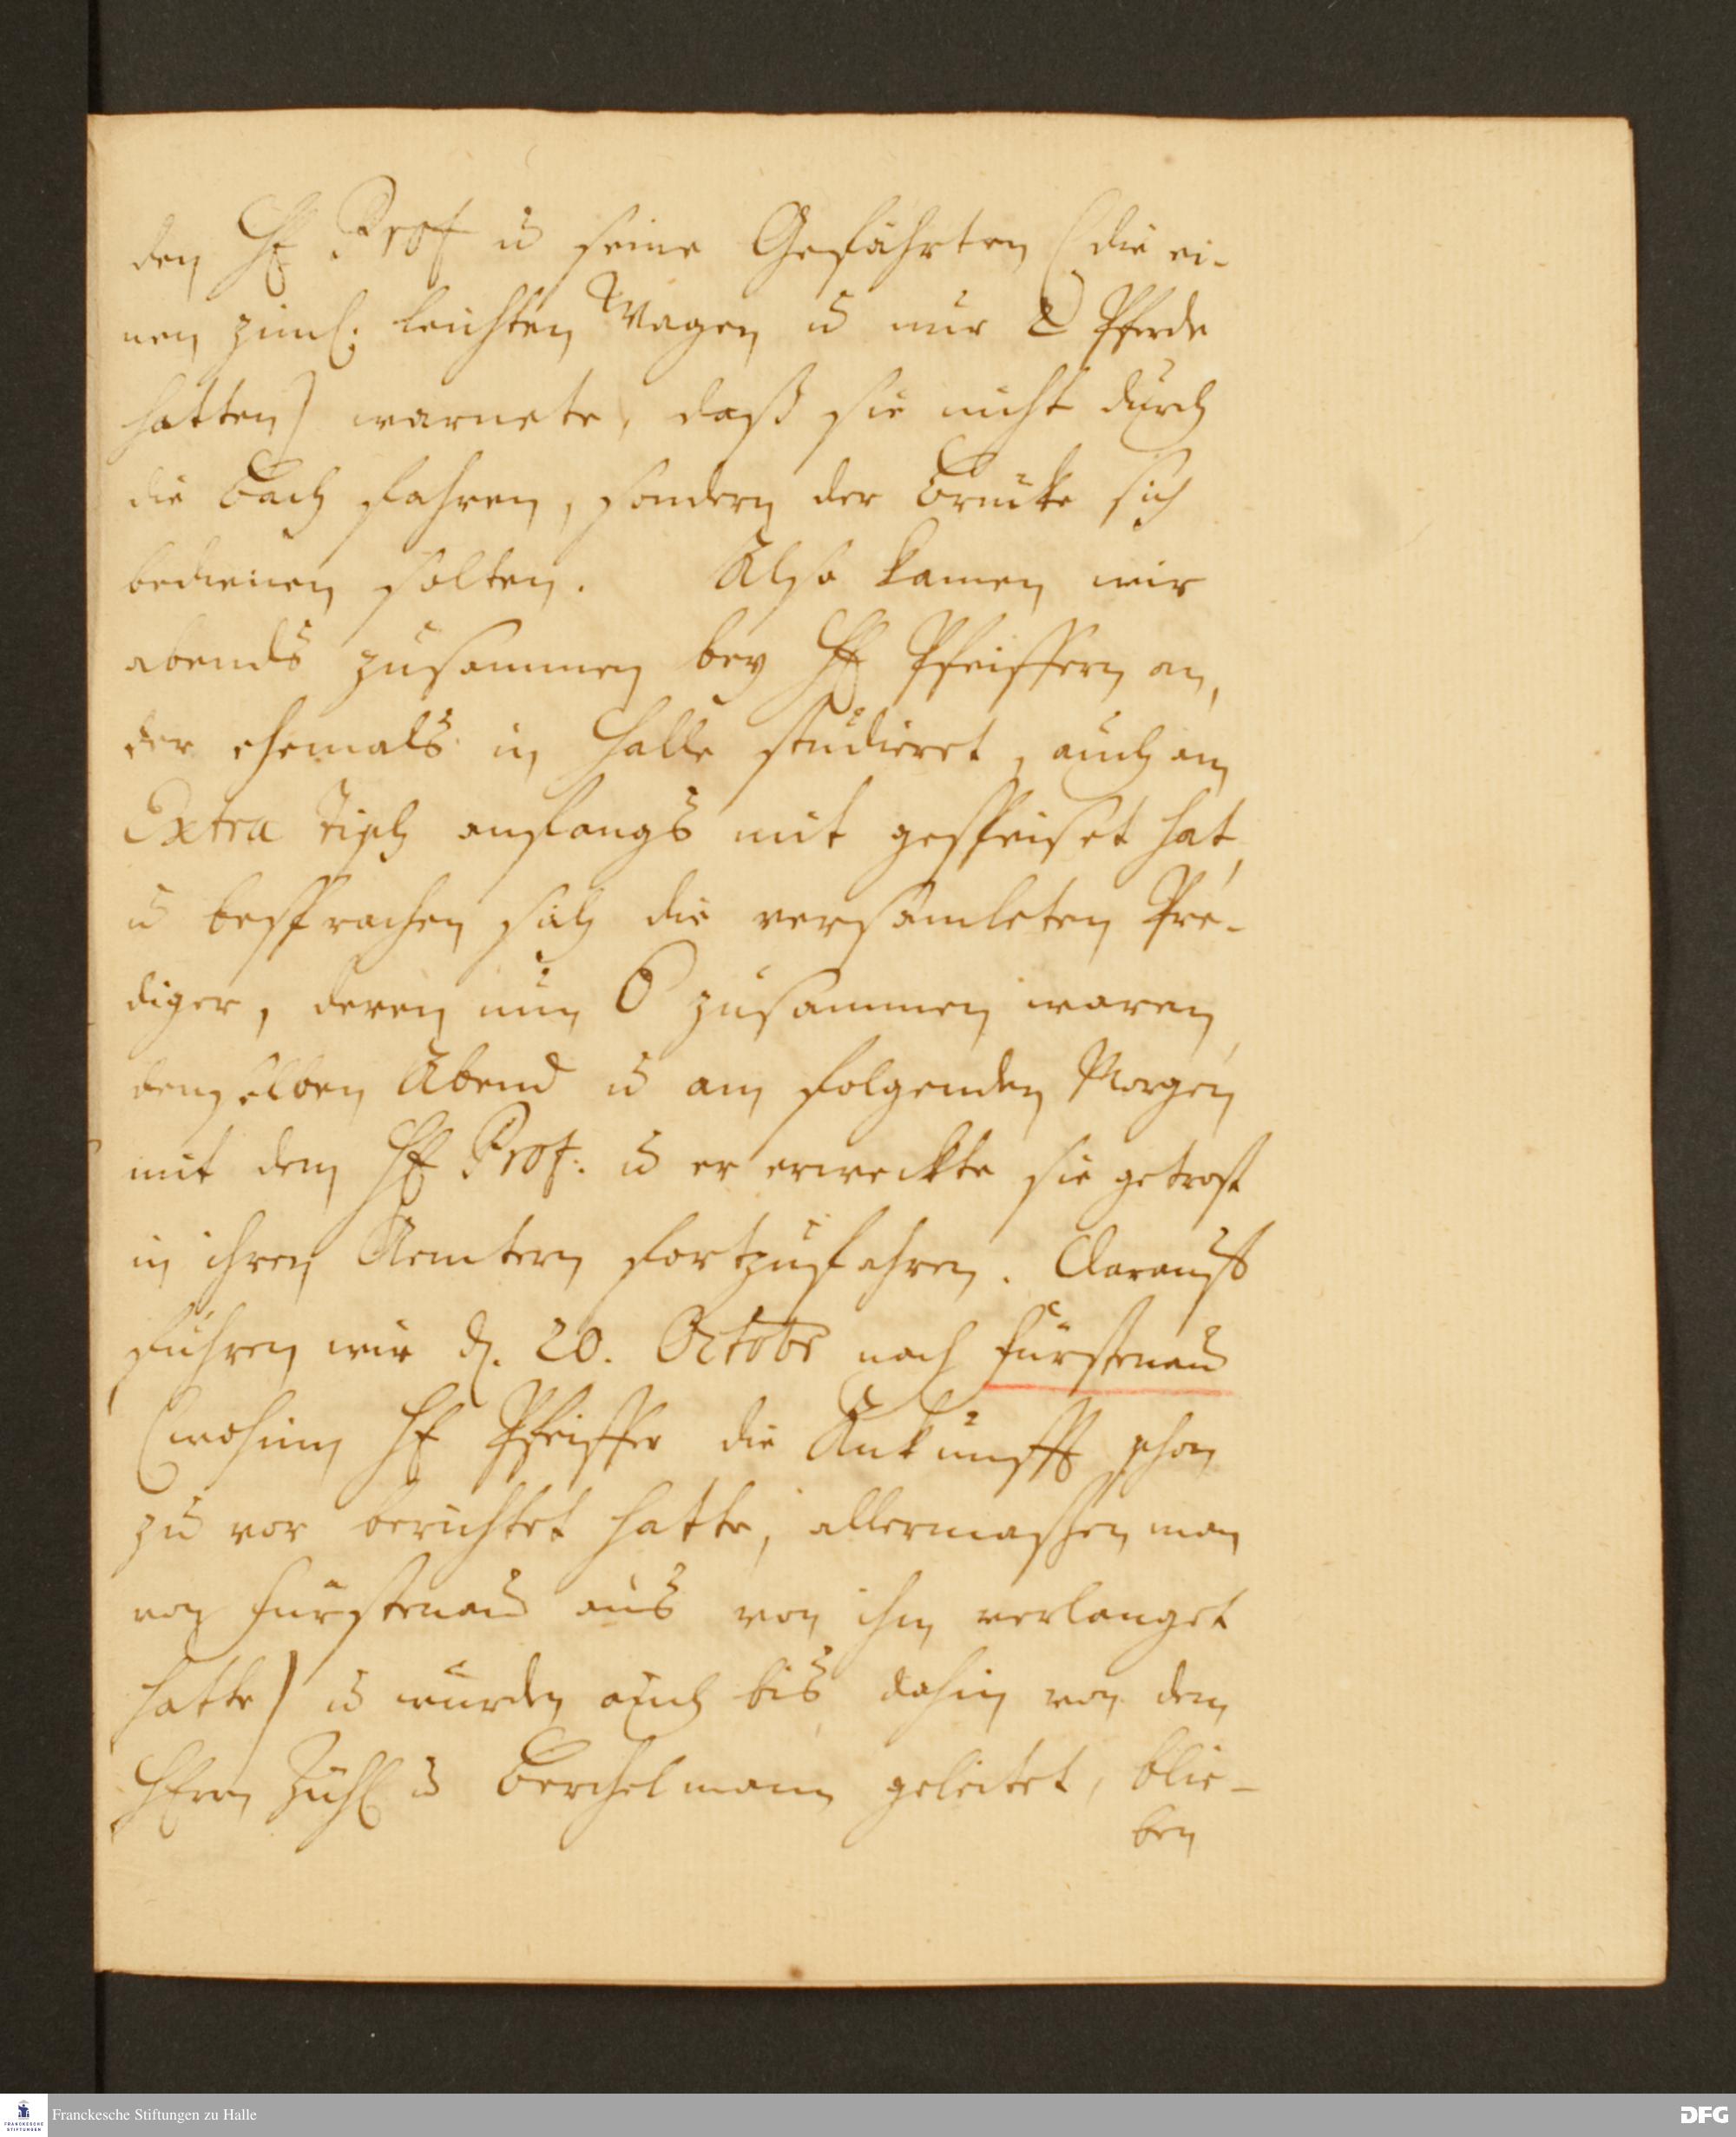 den H Prof u seine Gefährten (die ei-
nen ziml: leichten Wagen u nur 2 Pferde
hatten) warnete, daß sie nicht durch
die Bach fahren, sondern der Brücke sich
bedienen solten. Also kamen wir
abends zusammen bey H Pfeiffern an,
der ehemals in Halle studieret, auch am
Extra Tisch anfangs mit gespeiset hat,
u besprachen sich die versamleten Pre-
diger, deren nun 6 zusammen waren,
denselben Abend u am folgenden Morgen
mit dem H Prof. u er erweckte sie getrost
in ihren Aemtern fortzufahren. Darauf
fuhren wir d. 20. Octobr nach Fürstenau
(wohin H Pfeiffer die Ankunfft schon
zu vor berichtet hatte, allermassen man
von Fürstenau aus von ihm verlanget
hatte) u wurden auch bis dahin von den
Herrn Zühl u Berchelmann geleitet, blie-
ben
Franckesche Stiftungen zu Halle
FRANCKESCHE STIFTUNGEN
DFG